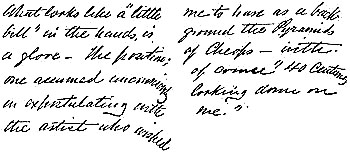 What looks like a "little
bill" in the hands, is
a glove — the position,
one assumed unconsciously
in expostulating with
the artist who wished
me to have as a back
ground the Pyramids
of Cheops — with
of course "40 Centuries
looking down on
me".